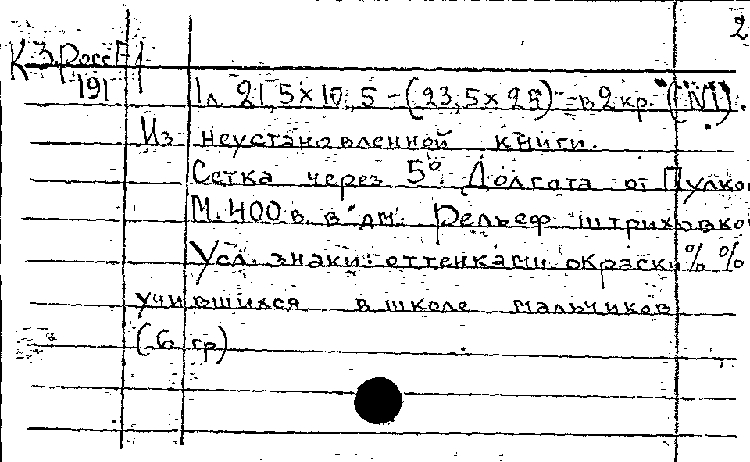 2
К 3. Росс Е1
191
1 л. 21,5 х 17,5 - (23,5 х 25) в 2 кр. ("VI").
Из неустановленной книги.
Сетка через 5°. Долгота от Пулко
М. 400 в. в дм. Рельеф штриховко
Усл. знаки: оттенками окраски % %
учившихся в школе мальчиков
(6 гр)